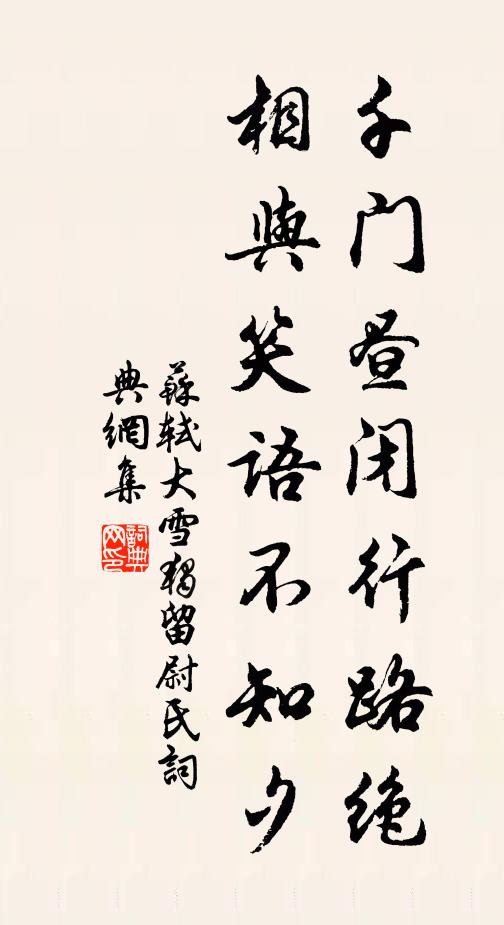 千门昼闭行路绝
相與笑语不知夕
蘇轼大雪獨留尉氏詞
典網集
詞典
网印